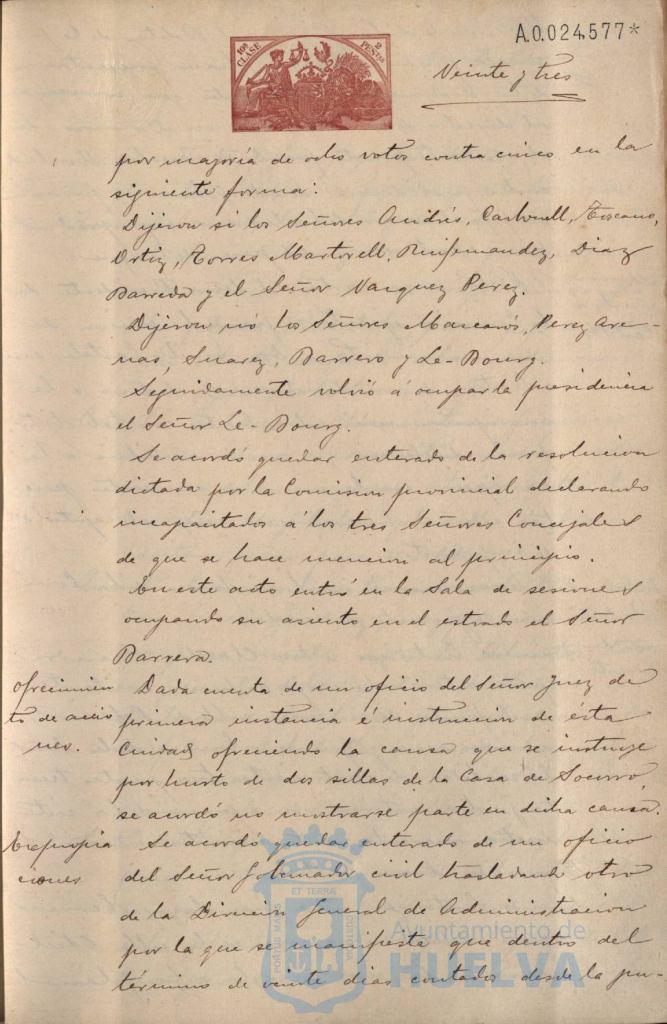 10ª CLASE
2 PESETAS
A.0.024,577*
Veinte y tres
por mayoría de ocho votos contra cinco en la
siguiente forma:
Dijeron si los Señores Andrés, Carbonell, Toscano,
Ortiz, Torres Martorell, Ruifernandez, Diaz
Barreda y el Señor Vazquez Perez.
Dijeron nó los Señores Mascarós, Perez Are-
nas, Suarez, Barrero y Le-Bourg.
Seguidamente volvió á ocupar la presidencia
el Señor Le-Bourg.
Se acordó quedar enterado de la resolucion
dictada por la Comision provincial declarando
incapacitados á los tres Señores Concejales
de que se hace mencion al principio.
En este acto entró en la Sala de sesiones
ocupando su asiento en el estrado el Señor
Barrera.
ofrecimien
to de accio
nes.
Dada cuenta de un oficio del Señor Juez de
primera instancia é instruccion de ésta
Ciudad ofreciendo la causa que se instruye
por hurto de dos sillas de la Casa de Socorro,
se acordó no mostrarse parte en dicha causa.
Expropia
ciones
Se acordó quedar enterado de un oficio
del Señor Gobernador civil trasladando otro
de la Direccion General de Administracion
por la que se manifiesta que dentro del
término de veinte dias contados desde la pu-
ET TERRA
PORTUS MARIS
CUSTODIA
Ayuntamiento de
HUELVA